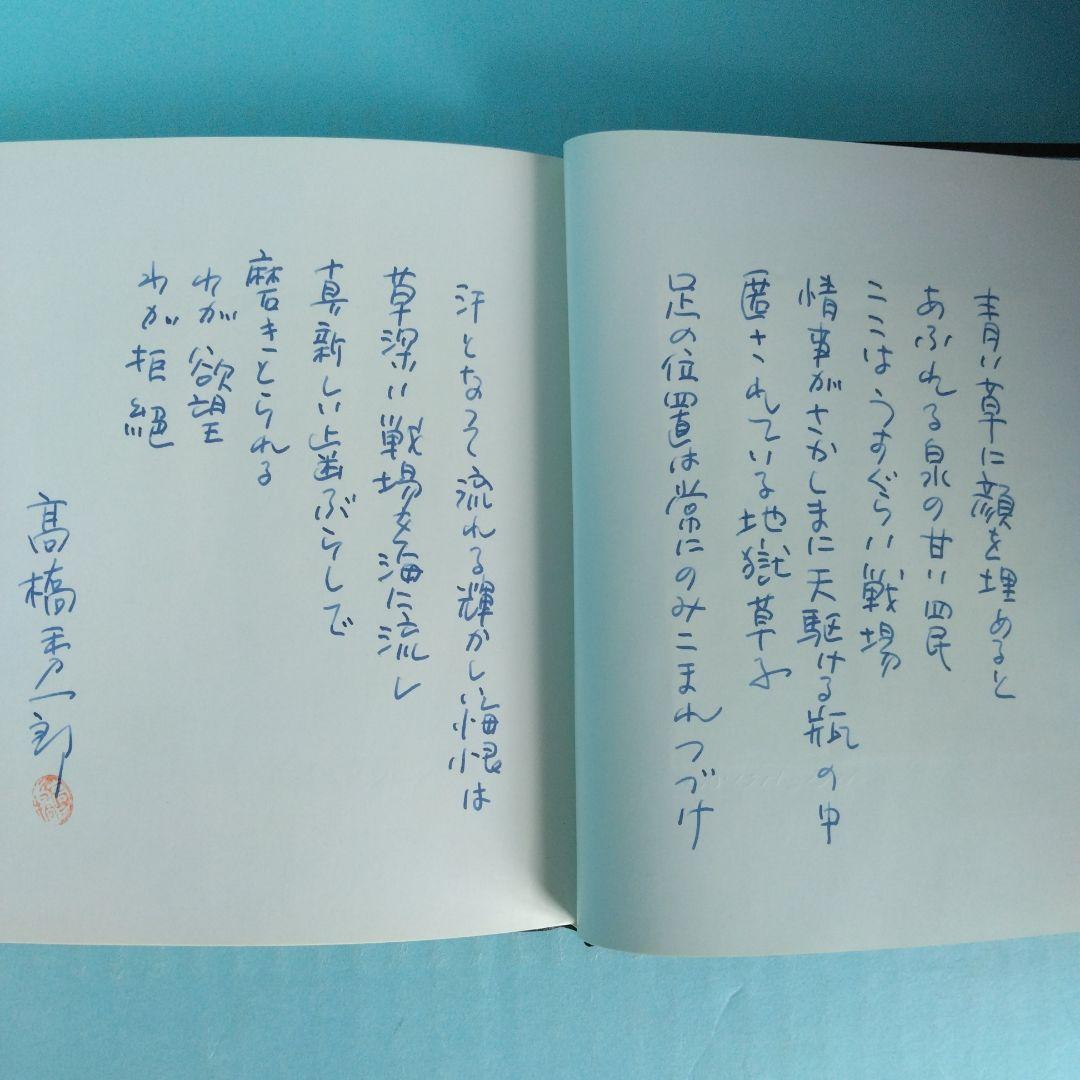 青い草に顔を埋めると
あふれる泉の甘い四民
ここはうすぐらい戦場
情事がさかしまに天駆ける瓶の中
匿されている地獄草子
足の位置は常にのみこまれつづけ
汗となって流れる輝かしい悔恨は
草深い戦場を海に流し
真新しい歯ぶらしで
磨きとられる
わが欲望
わが拒絶
高橋秀一郎